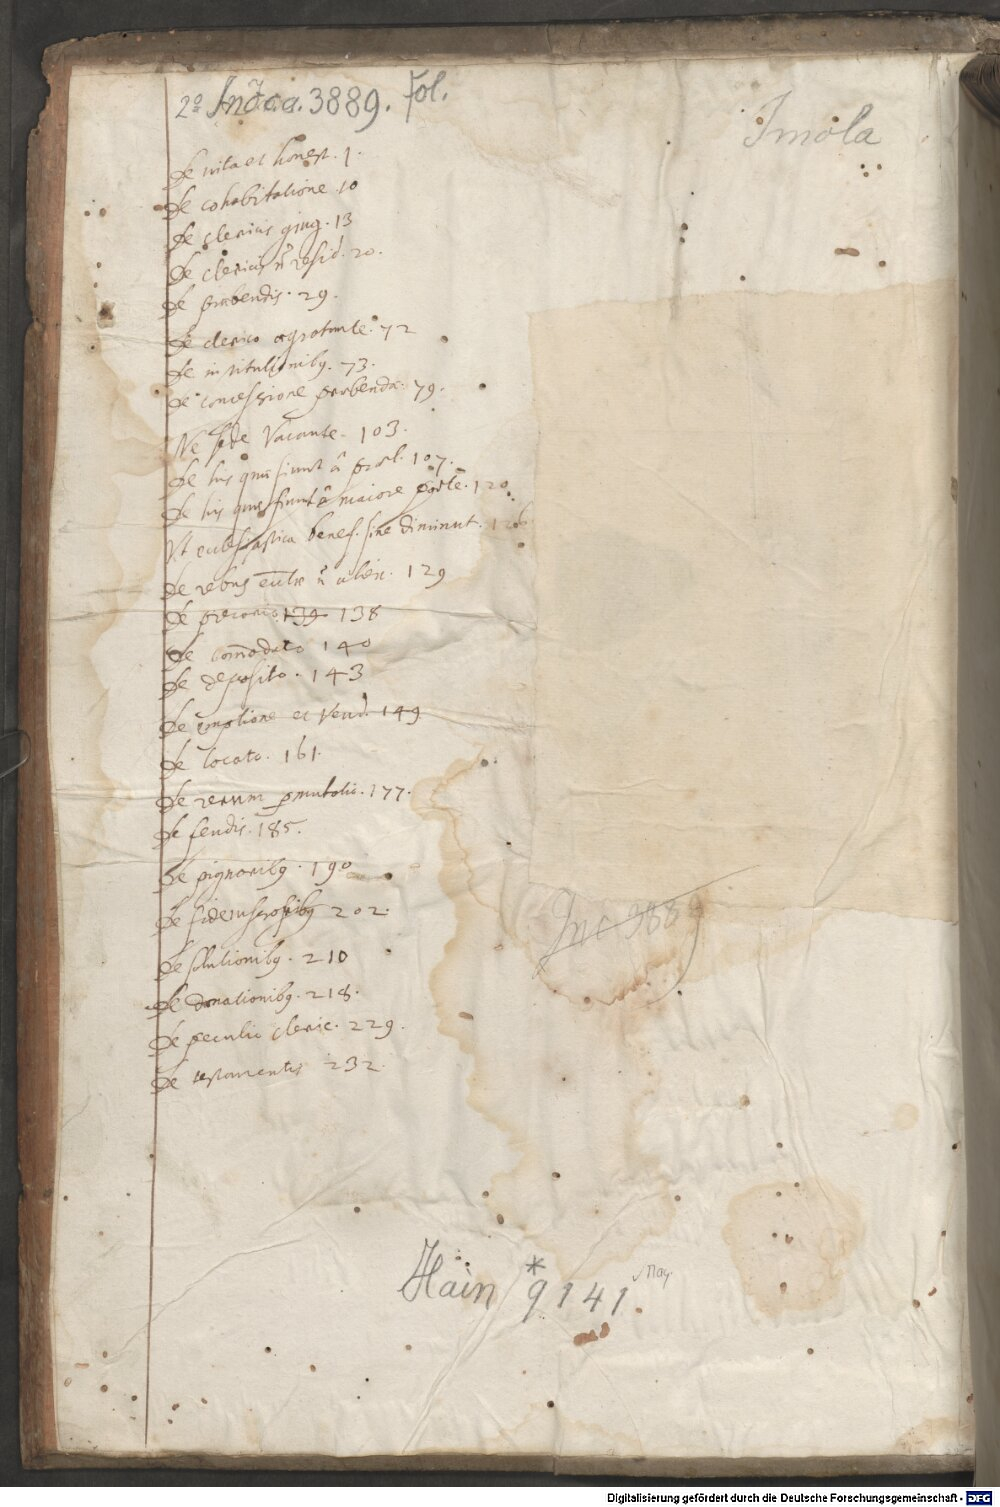 2º Inc. c.a. 3889. Fol.
Imola
de vita et honest. 1.
de cohabitatione 10
de clericis coniug. 13
de clericis ñ resid. 20.
de præbendis. 29.
de clerico ægrotante. 72
de institutionibq. 73.
de concessione præbendæ. 79.
Ne sede Vacante. 103.
de his quæ fiunt â præl. 107.
de his quæ fiunt â maiore parte. 120.
Vt ecclesiastica benef. sine diminut. 126
de rebus eccłæ ñ alien. 129
de precario 139 138
de comodato 140
de deposito. 143
de emptione et Vend. 149
de locato. 161.
de rerum pmutatio. 177.
de feudis. 185.
de pignoribq. 190
de fideiussoribq 202.
de solutionibq. 210
de donationibq. 218.
de peculio cleric. 229.
de testamentis 232.
Inc 3889
Hain *9141.
Digitalisierung gefördert durch die Deutsche Forschungsgemeinschaft - DFG